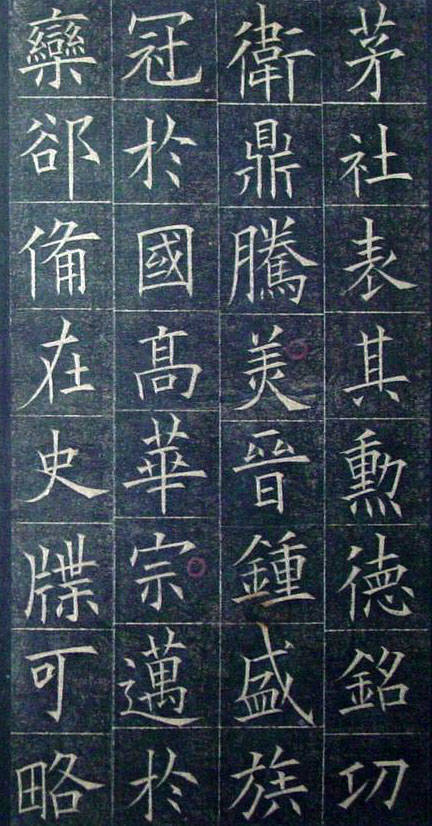 茅社表其勲德銘功
衛鼎騰美晉鍾盛族
冠於國高華宗邁於
欒郤備在史牒可略